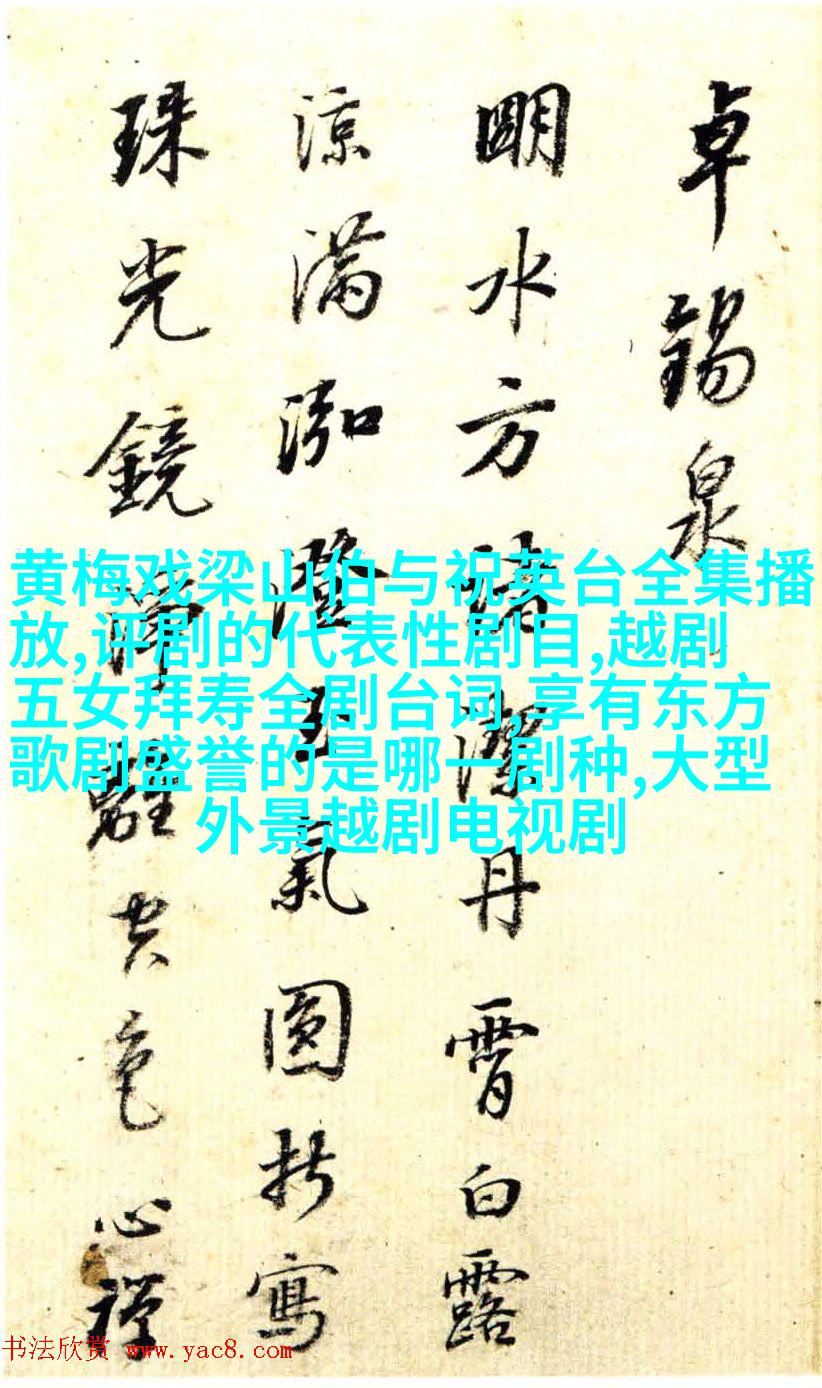 卓錫泉
明水方諸潔丹霄白露
涼滿泓澄一氣圓折寫
珠光鏡淨離央色心禪
黄梅戏梁山伯与祝英台全集播
放,评剧的代表性剧目,越剧
五女拜寿全剧台词,享有东方
歌剧盛誉的是哪一剧种,大型
外景越剧电视剧
书法欣赏 www.yac8.com